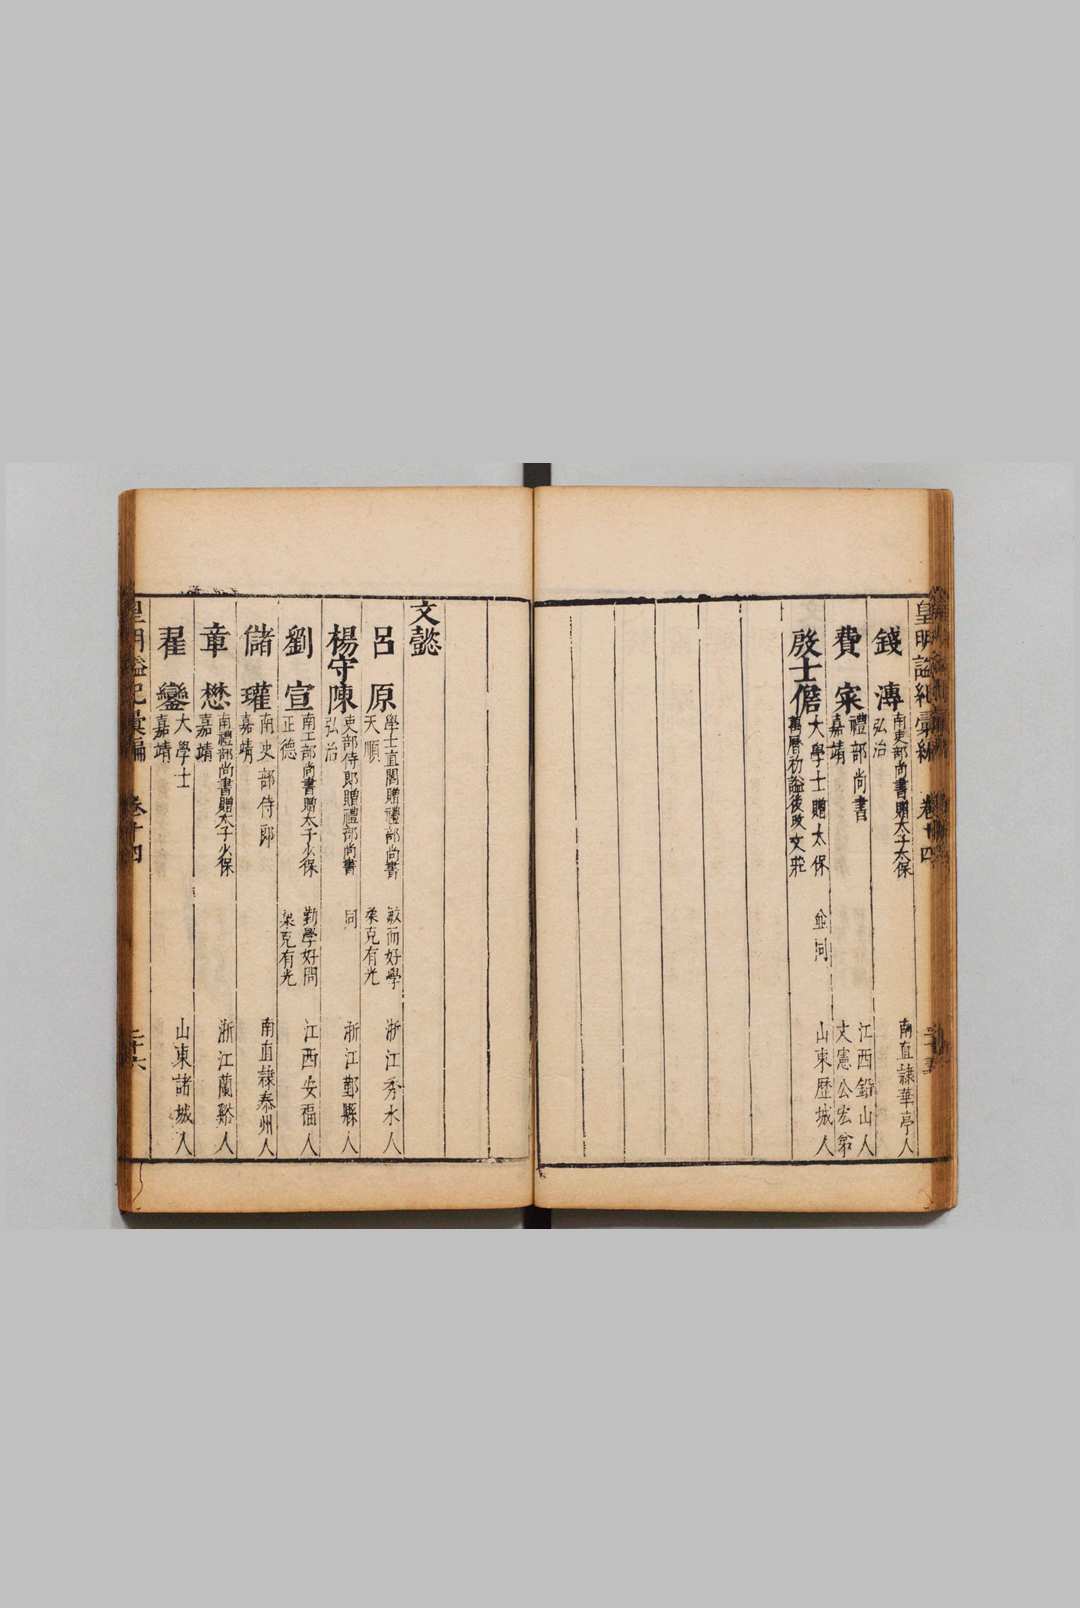 皇明諡紀彙編 卷十四 二十五
錢溥 南吏部尚書贈太子太保 南直隸華亭人
弘治
費寀 禮部尚書 江西鉛山人
嘉靖 文憲公宏弟
殷士儋 大學士贈太保 並同 山東歷城人
萬曆初諡後改文莊
文懿
呂原 學士直閣贈禮部尚書 敏而好學 浙江秀水人
天順 柔克有光
楊守陳 吏部侍郎贈禮部尚書 同 浙江鄞縣人
弘治
劉宣 南工部尚書贈太子少保 勤學好問 江西安福人
正德 柔克有光
儲瓘 南吏部侍郎 南直隸泰州人
嘉靖
章懋 南禮部尚書贈太子少保 浙江蘭谿人
嘉靖
翟鑾 大學士 山東諸城人
嘉靖
皇明諡紀彙編 卷十四 二十六